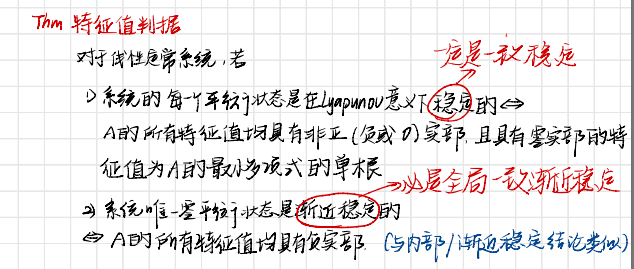 Thm 特征值判据
对于线性定常系统,若
一定是一致稳定
1) 系统的每一个平衡状态是在Lyapunov意义下稳定的⇔
A的所有特征值均具有非正(负或0)实部,且具有零实部的特
征值为A的最小多项式的单根
必是全局一致渐近稳定
2) 系统唯一零平衡状态是渐近稳定的
⇔ A的所有特征值均具有负实部 (与内部/渐近稳定结论类似)